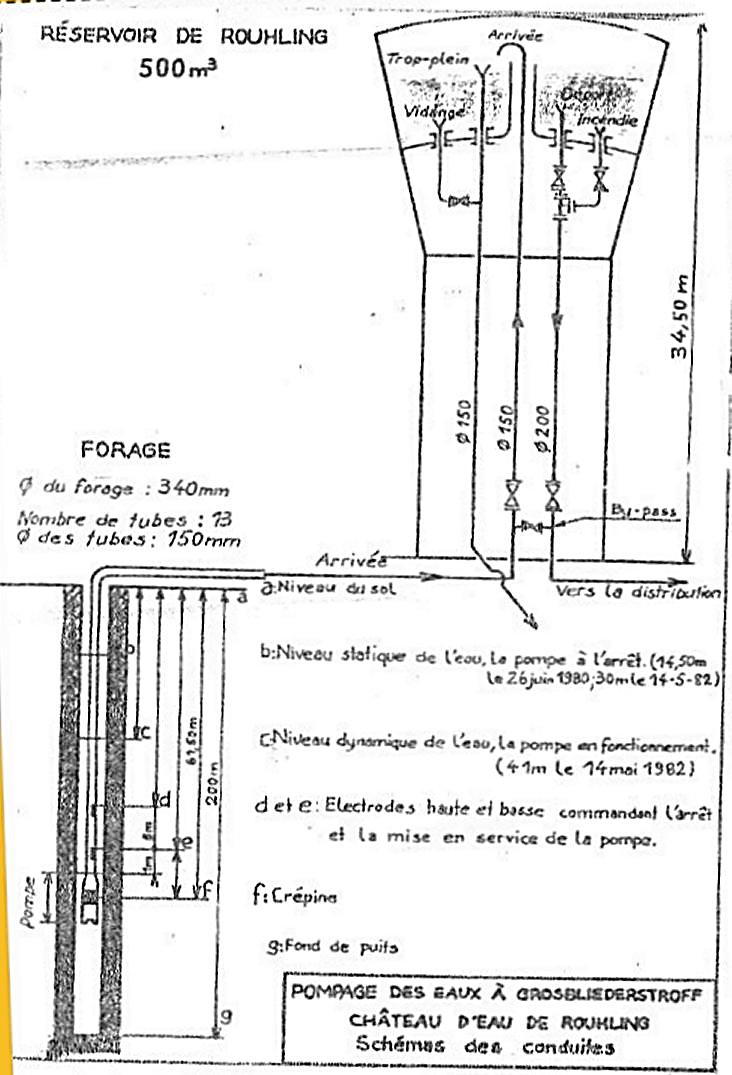 RÉSERVOIR DE ROUHLING
500m³
Arrivée
Trop-plein
Départ
Vidange
Incendie
34,50 m
Ø 150
Ø 150
Ø 200
By-pass
FORAGE
Ø du forage : 340mm
Nombre de tubes : 13
Ø des tubes : 150mm
Arrivée
a
a:Niveau du sol
Vers la distribution
b
b:Niveau statique de l'eau, la pompe à l'arrêt. (14,50m
le 26 juin 1980; 30m le 14-5-82)
c
c:Niveau dynamique de l'eau, la pompe en fonctionnement.
(41m le 14 mai 1982)
200m
d
d et e: Electrodes haute et basse commandant l'arrêt
et la mise en service de la pompe.
8m
e
1m
f
f: Crépine
Pompe
g:Fond de puits
g
POMPAGE DES EAUX À GROSBLIEDERSTROFF
CHÂTEAU D'EAU DE ROUHLING
Schémas des conduites